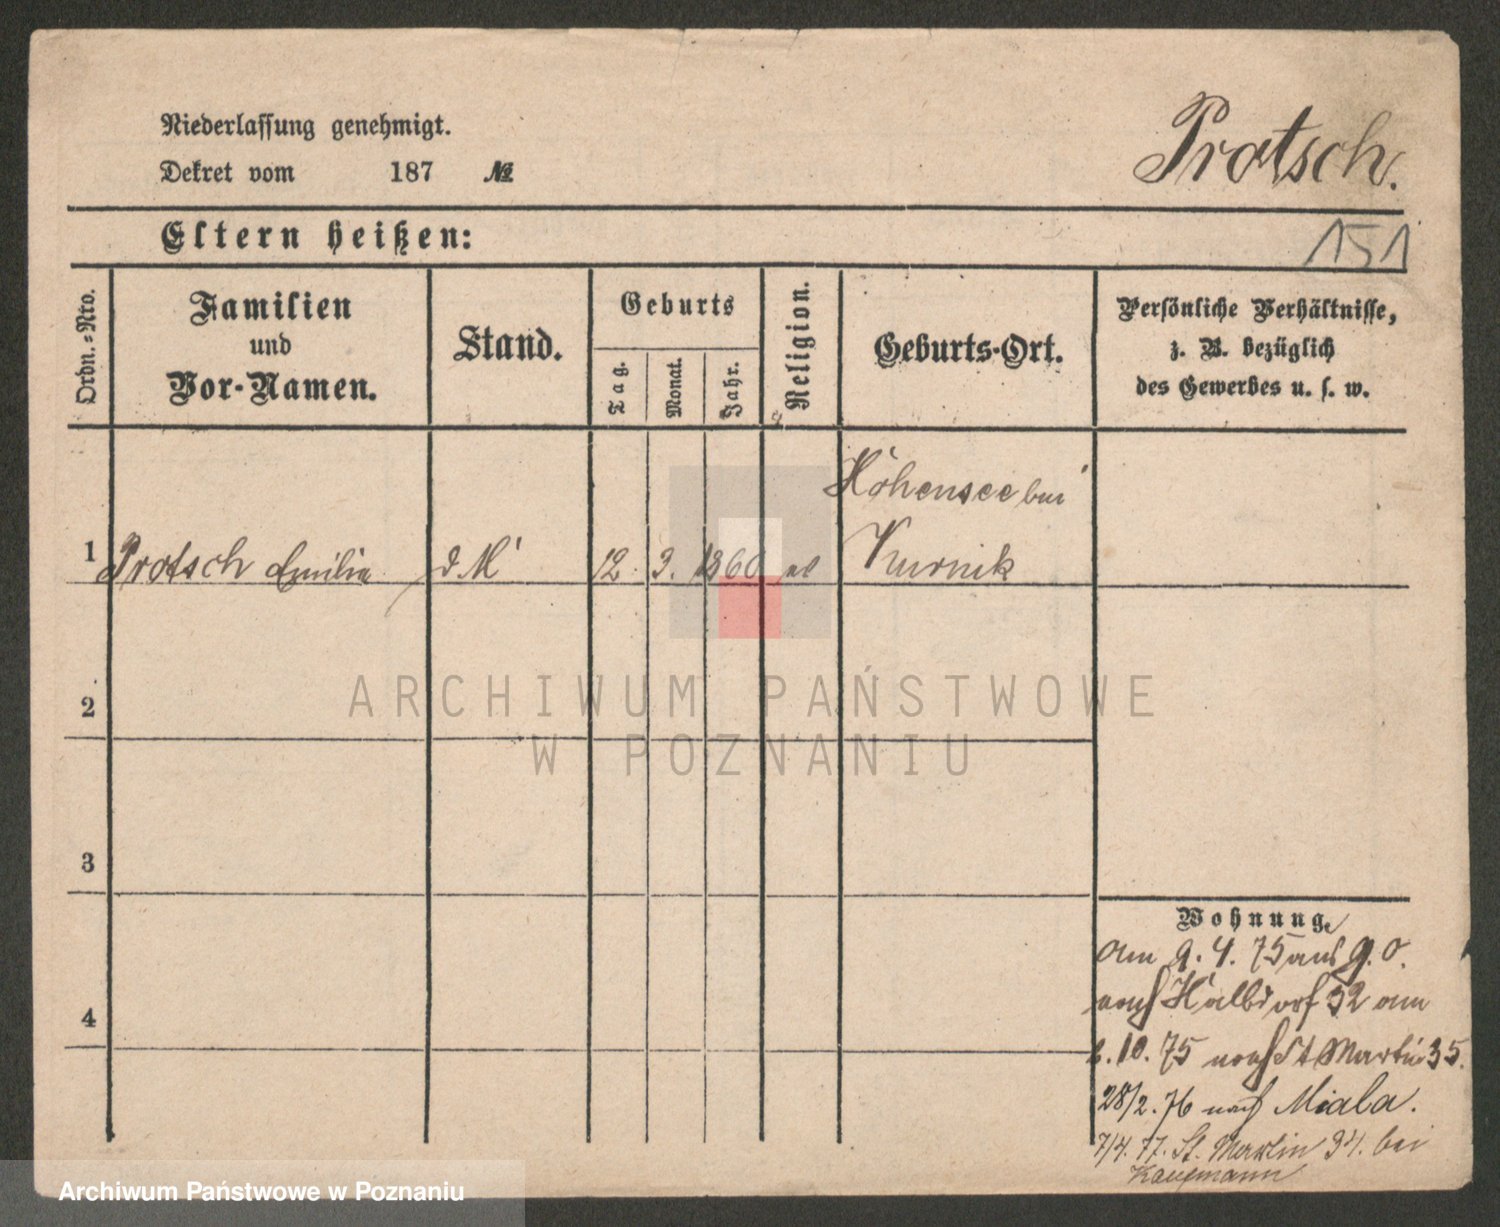 Niederlassung genehmigt.
Dekret vom 187 №
Protsch.
Eltern heißen:
151
Ordn.-Nro.
Familien
und
Vor-Namen.
Stand.
Geburts
Tag.
Monat.
Jahr.
Religion.
Geburts-Ort.
Persönliche Verhältnisse,
z. B. bezüglich
des Gewerbes u. s. w.
Hohensee bei
1 Protsch Emilie d M 12. 3. 1860 Kurnik
2
3
4
Wohnung.
Am 9. 4. 75 aus g. O.
nach Halbdorf 32 am
10. 75 nach St Martin 35.
28/2. 76 nach Miala.
7/4. 77. St. Martin 34. bei
Kaufmann
ARCHIWUM PAŃSTWOWE
W POZNANIU
Archiwum Państwowe w Poznaniu